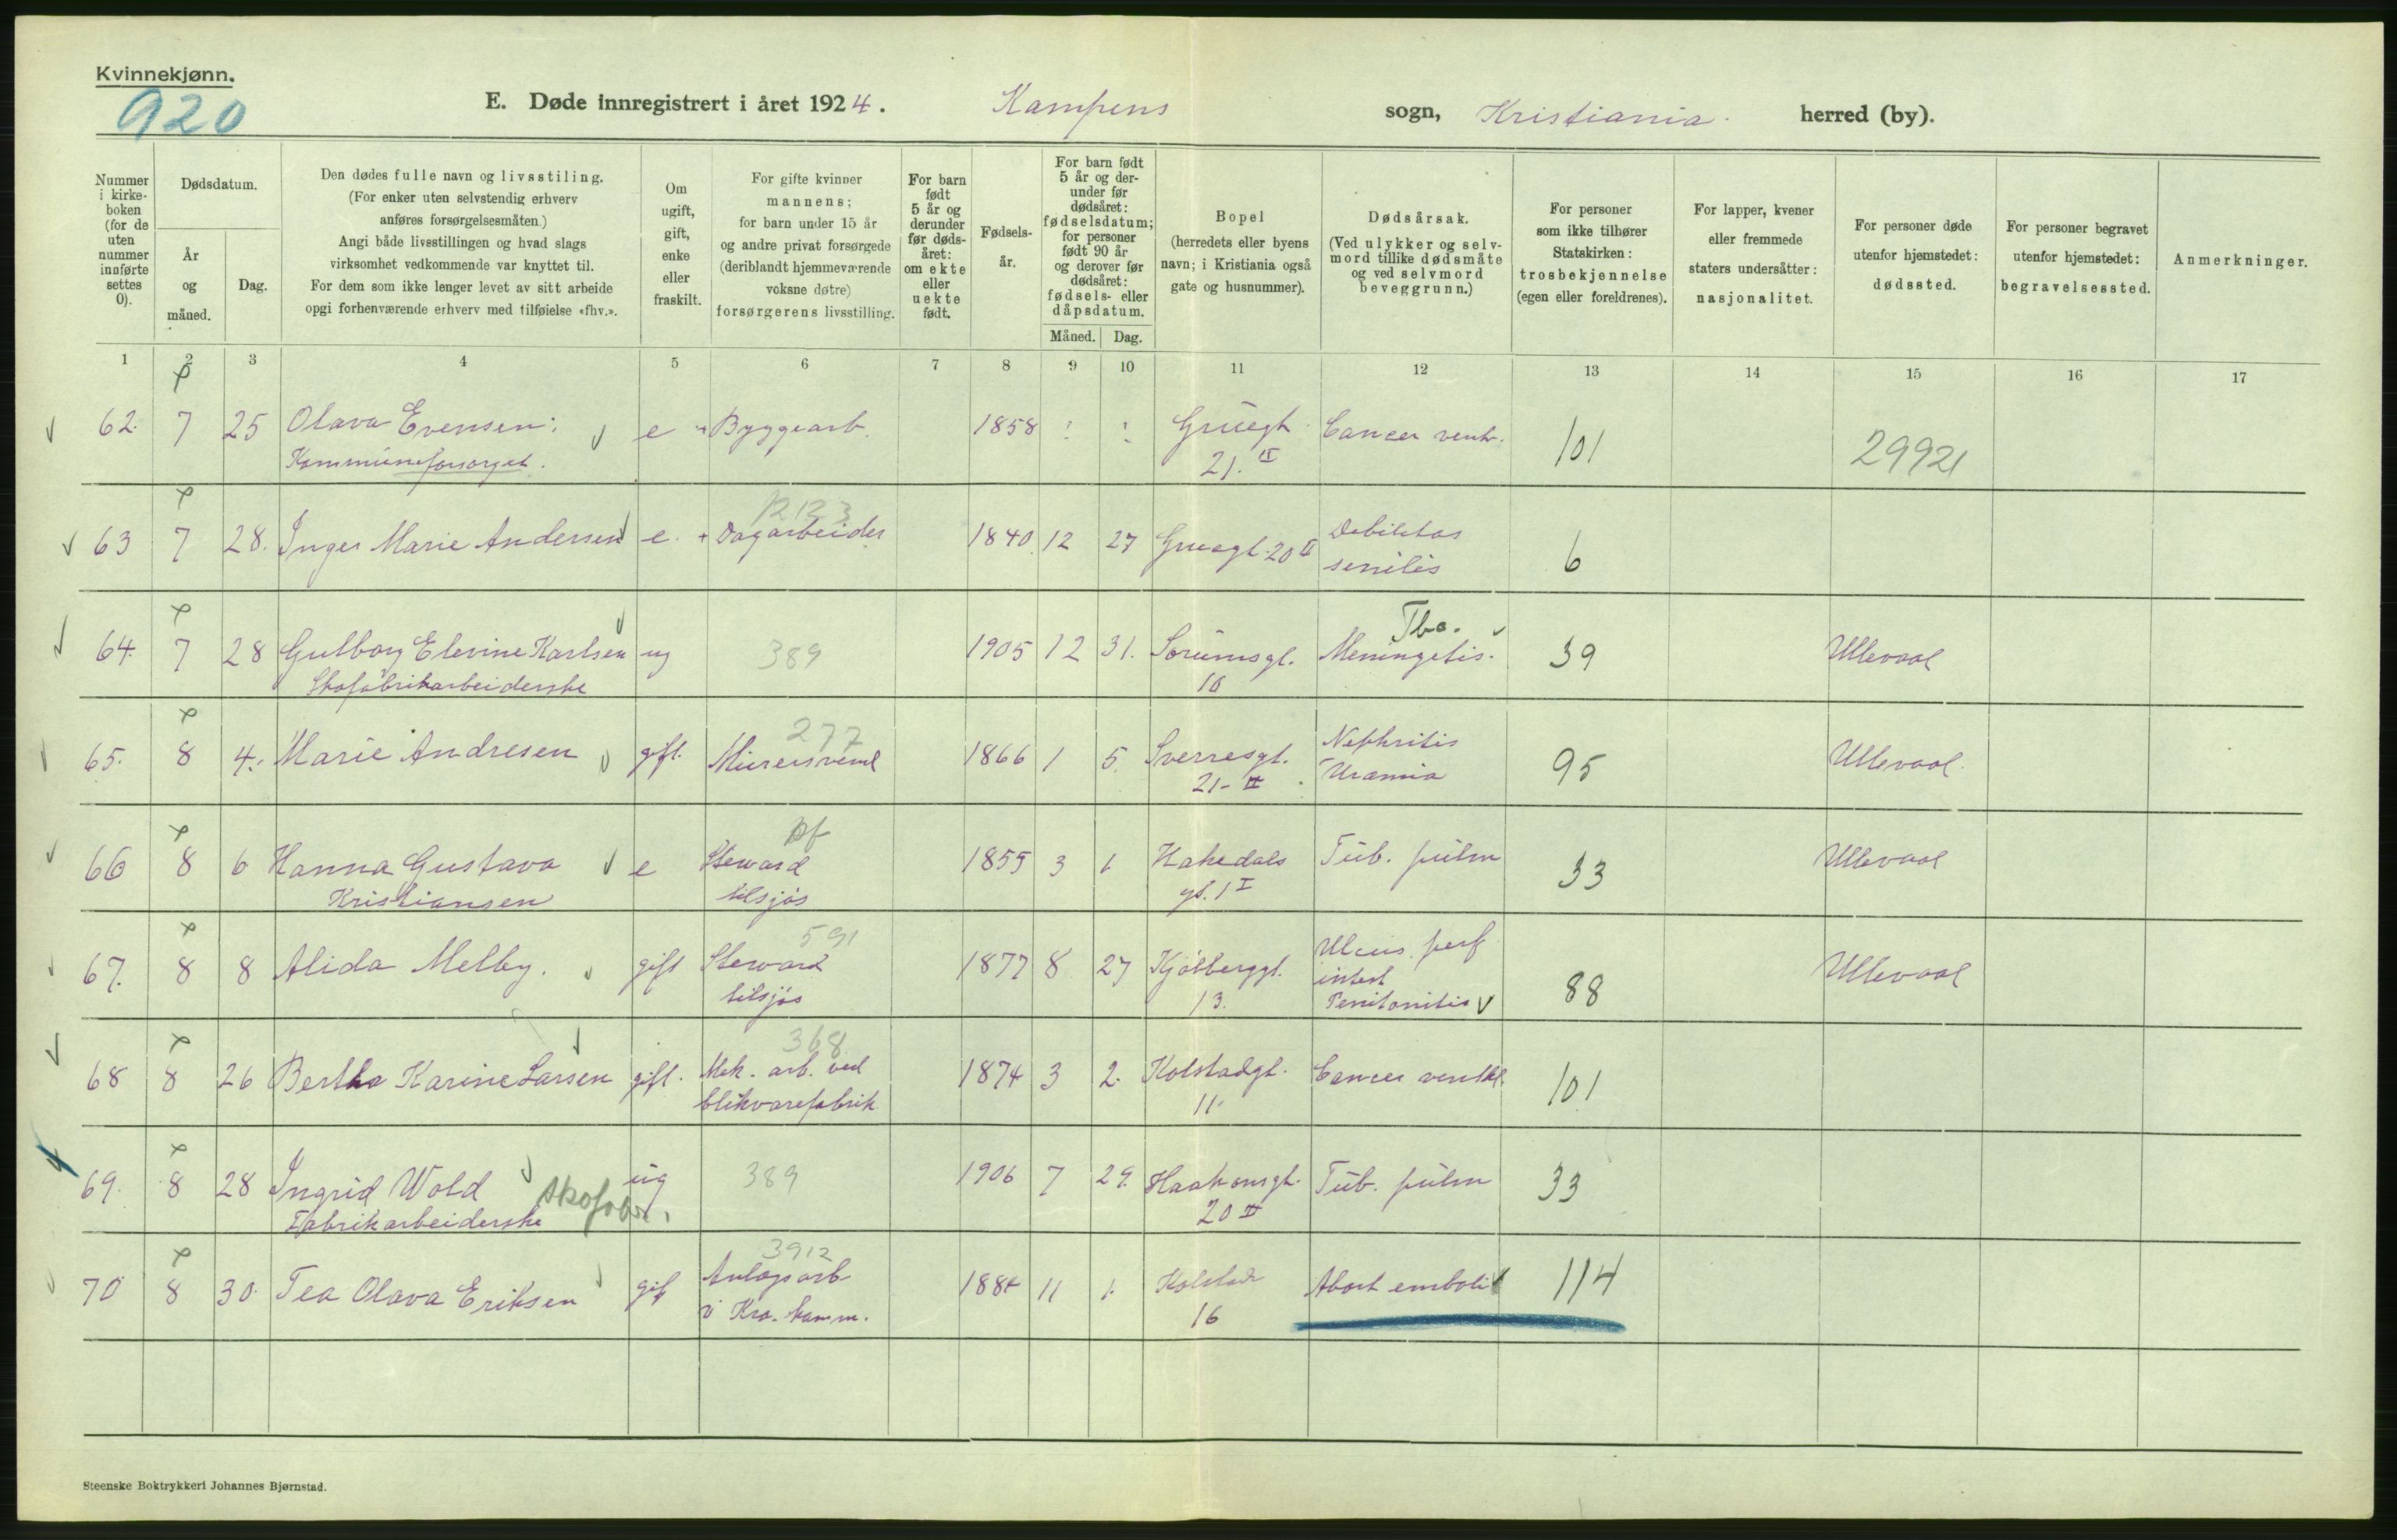 Kvinnekjønn.
920
E. Døde innregistrert i året 1924. Kampens sogn, Kristiania. herred (by).
Nummer i kirke- boken (for de uten nummer innførte settes 0).
Dødsdatum.
År og måned.
Dag.
Den dødes fulle navn og livsstiling.
(For enker uten selvstendig erhverv
anføres forsørgelsesmåten.)
Angi både livsstillingen og hvad slags
virksomhet vedkommende var knyttet til.
For dem som ikke lenger levet av sitt arbeide
opgi forhenværende erhverv med tilføielse «fhv.».
Om ugift, gift, enke eller fraskilt.
For gifte kvinner
mannens;
for barn under 15 år
og andre privat forsørgede
(deriblandt hjemmeværende
voksne døtre)
forsørgerens livsstilling.
For barn født 5 år og derunder før døds- året: om ekte eller uekte født.
Fødsels- år.
For barn født
5 år og der-
under før
dødsåret:
fødselsdatum;
for personer
født 90 år
og derover før
dødsåret:
fødsels- eller
dåpsdatum.
Måned. Dag.
Bopel
(herredets eller byens
navn; i Kristiania også
gate og husnummer).
Dødsårsak.
(Ved ulykker og selv-
mord tillike dødsmåte
og ved selvmord
beveggrunn.)
For personer
som ikke tilhører
Statskirken:
trosbekjennelse
(egen eller foreldrenes).
For lapper, kvener
eller fremmede
staters undersåtter:
nasjonalitet.
For personer døde
utenfor hjemstedet:
dødssted.
For personer begravet
utenfor hjemstedet:
begravelsessted.
Anmerkninger.
1 2 3 4 5 6 7 8 9 10 11 12 13 14 15 16 17
62. 7 25 Olava Evensen. e Byggearb. 1858 Grüegt. Cancer ventr. 101 29921
Kommuneforsørget. 21. II
R123
63 7 28. Inger Marie Andersen e. + Dagarbeider 1840 12 27 Gruegt. 20 II Debilitas 6
senilis
Tbc.
64. 7 28 Gulborg Elevine Karlsen ug 389 1905 12 31. Sørumsgt. Meningetis. 39 Ullevaal
Skofabrikarbeiderske 10
277
65. 8 4. Marie Andresen gift. Murersvend 1866 1 5. Sverresgt. Nephritis 95 Ullevaal.
21- II Uræmia
66 8 6 Hanna Gustava e Steward 1855 3 1. Hakedals Tub. pulm 33 Ullevaal
Kristiansen tilsjøs gt. 1 I
591
67. 8 8 Alida Melby. gift Steward 1877 8 27 Kjølberggt. Ulcus. perf. 88 Ullevaal
tilsjøs 13. intest
Peritonitis
368
68 8 26 Bertha Karine Larsen gift. Mek. arb. ved 1874 3 2. Kolstadgt. Cancer ventkl. 101
blikvarefabrik 11.
69. 8 28 Ingrid Wold ug 389 1906 7 29. Haakonsgt. Tub. pulm 33
Fabrikarbeiderske Skofabr. 20 II
3912
70 8 30. Tea Olava Eriksen gif Anlegsarb 1884 11 1. Kolstad Abort emboli 114
v Kra. komm. 16
Steenske Boktrykkeri Johannes Bjørnstad.